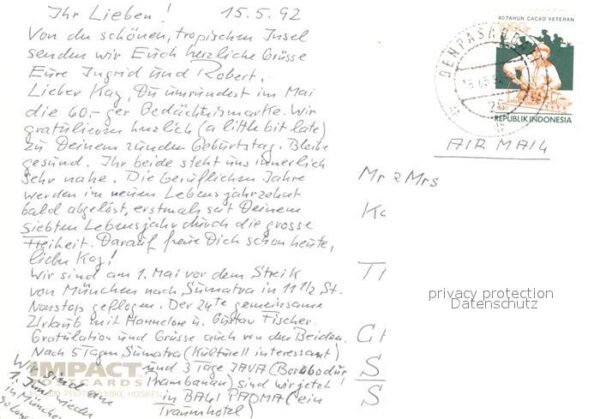 Ihr Lieben! 15.5.92
Von der schönen, tropischen Insel
senden wir Euch herzliche Grüsse
Eure Ingrid und Robert.
Lieber Kay, Du umrundest im Mai
die 60.-ger Gedächtnismarke. Wir
gratulieren herzlich (a little bit late)
zu Deinem runden Geburtstag. Bleibe
gesund. Ihr beide steht uns innerlich
sehr nahe. Die beruflichen Jahre
werden im neuen Lebensjahrzehnt
bald abgelöst, erstmals seit Deinem
siebten Lebensjahr durch die grosse
Freiheit. Darauf freue Dich schon heute,
lieber Kay!
Wir sind am 1. Mai vor dem Streik
von München nach Sumatra in 11 1/2 St.
Nonstop geflogen. Der 24te gemeinsame
Urlaub mit Hannelore u. Gustav Fischer.
Gratulation und Grüsse auch von den Beiden.
Nach 5 Tagen Sumatra (Kulturell interessant)
und 3 Tage JAVA (Borobodur
Prambanan) sind wir jetzt
in BALI PADMA (ein
Traumhotel)
Wir sind am
1. Juni wieder
in München
IMPACT
POSTCARDS
MIKE HOSKEN
DENPASAR
40 TAHUN CACAD VETERAN
REPUBLIK INDONESIA
AIR MAIL
Mr & Mrs
K
T
C
S
S
privacy protection
Datenschutz